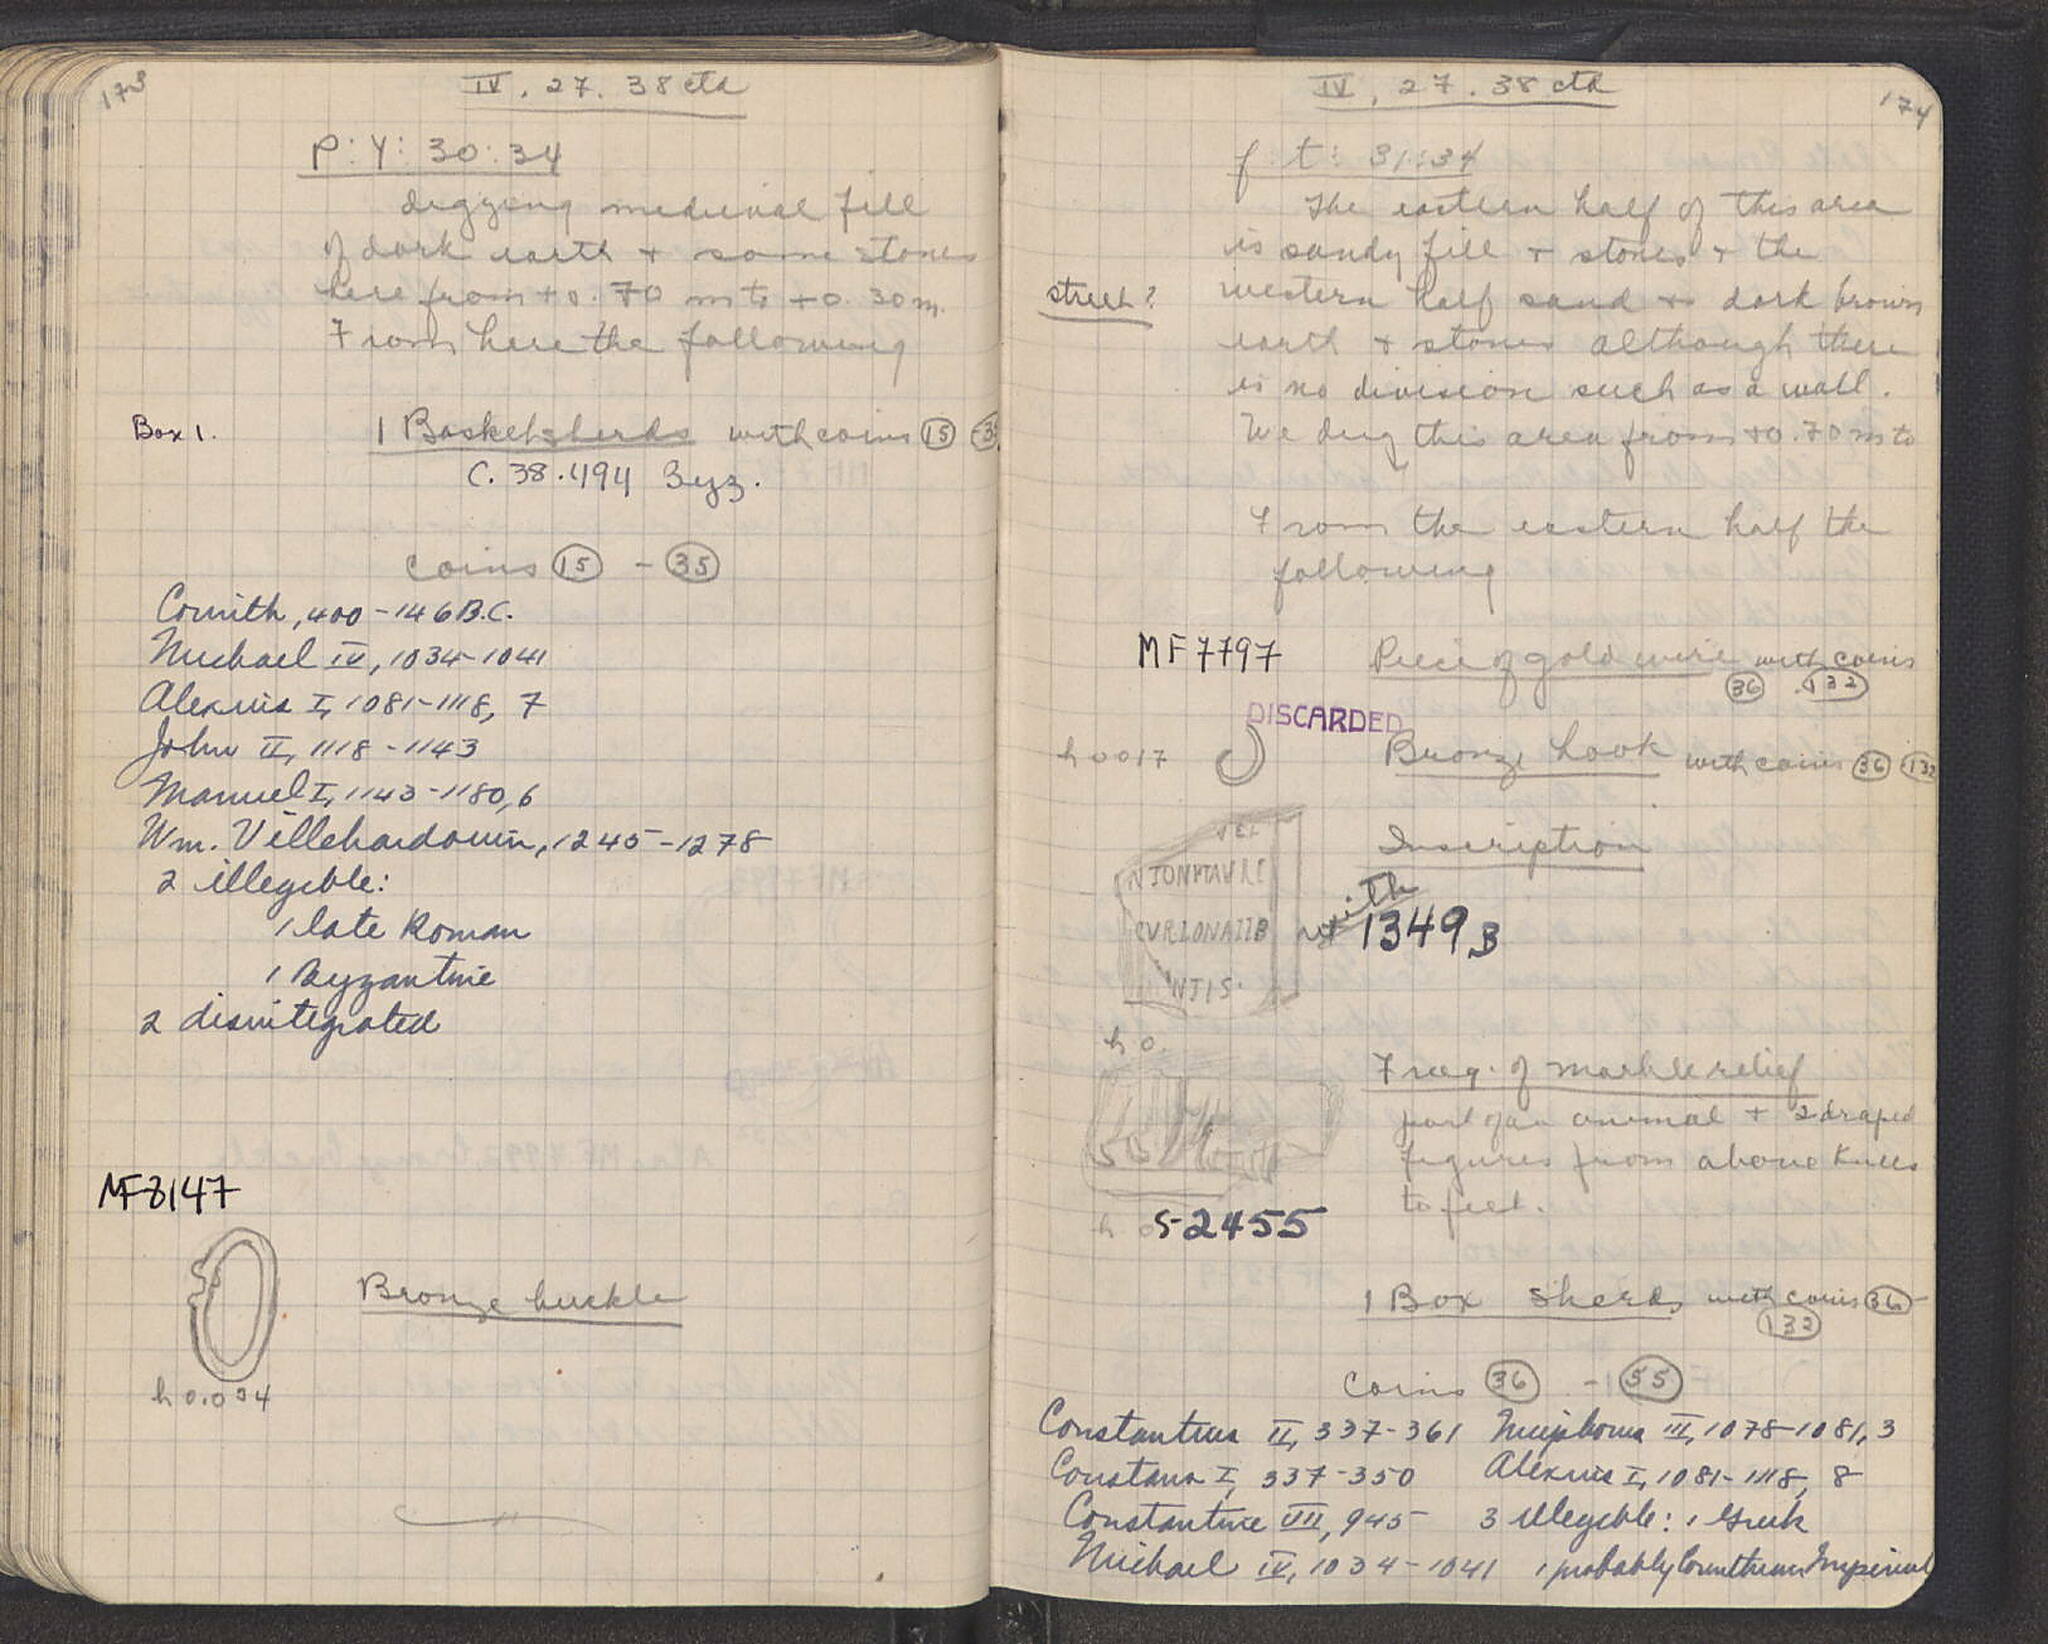 173
IV. 27. 38 ctd
P:Y: 30:34
digging medieval fill
of dark earth + some stones
here from +0.70 m to +0.30 m.
From here the following
Box 1.
1 Basket sherds with coins 15 35
C. 38.494 Byz.
coins 15 - 35
Corinth, 400-146 B.C.
Michael IV, 1034-1041
Alexius I, 1081-1118, 7
John II, 1118-1143
Manuel I, 1143-1180, 6
Wm. Villehardouin, 1245-1278
2 illegible:
1 late Roman
1 Byzantine
2 disintegrated
MF8147
Bronze buckle
h 0.034
174
IV, 27. 38 ctd
f t: 31:34
The eastern half of this area
is sandy fill + stones + the
street?
western half sand + dark brown
earth + stones although there
is no division such as a wall.
We dug this area from +0.70 m to
From the eastern half the
following
MF7797
Piece of gold wire with coins
36 132
DISCARDED
h 0017
Bronze hook with coins 36 132
Inscription
VEL
NIONMAVRE
CVRIONAIIB
NTIS.
with
1349B
h 0.
Frag. of marble relief
part of an animal + 2 draped
figures from above knees
to feet.
h 0
S-2455
1 Box sherds with coins 36
132
coins 36 - 55
Constantius II, 337-361 Nicephorus III, 1078-1081, 3
Constans I, 337-350 Alexius I, 1081-1118, 8
Constantine VII, 945 3 illegible: 1 Greek
Michael IV, 1034-1041 1 probably Corinthian Imperial